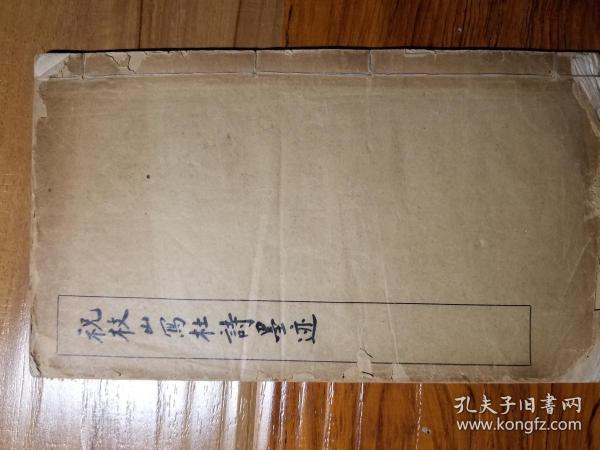 祝枝山写杜詩墨迹
孔夫子旧書网
www.kongfz.com